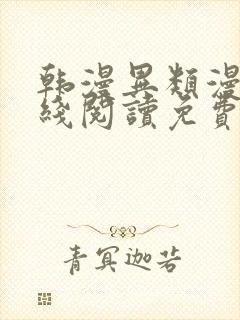 韩漫異類漫
綫閱讀免費
青冥迦若